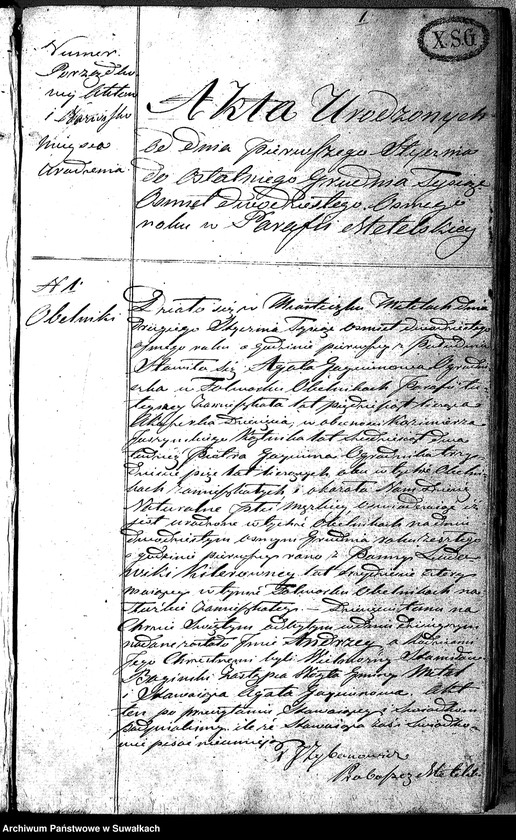 1
X.S.G.
Numer
Porządko
wy Aktów
i Nazwisko
Miejsca
Urodzenia
Akta Urodzonych
Od dnia pierwszego Stycznia
do Ostatniego Grudnia Tysiąc
Osmset dwódziestego Osmego
roku w Parafii Metelskiey
N 1
Obelniki
Działo się w Miasteczku Metelach dnia
drugiego Stycznia Tysiąc osmset dwudziestego
osmego roku o godzinie pierwszey z Południa
Stawiła się Agata Ogrodni
w Folwarku Obelnikach Parafii tu
teyszey Zamieszkała lat pięćdziesiąt licząca
w obecności Kazimierza
lat siedmdziesiąt dwa
tudzież Piotra Ogrodnika trzy
dzieście pięć lat liczących, obu w tychże Obelni
kach Zamieszkałych i okazała Nam Dziecie
Naturalne płci Męzkiey oświadczając iż
jest urodzone w tychże Obelnikach na dniu
dwudziestym osmym Grudnia roku zeszłego
o godzinie pierwszey rano z Panny Ludo-
wiki lat dwydzieście cztery
maiącey w tymże Folwarku Obelnikach na
służbie Zamieszkałey. – Dziecięciu temu na
Chrzcie Świętym odbytym w dniu dzisieyszym
nadane zostało Imie Andrzey, a Rodzicami
Jego Chrzestnemi byli Wielmożny Stanisław
Bagiński Zastępca Wóyta Gminy Metel
i Stawaiąca Agata Akt
ten po przeczytaniu Stawaiącey i Świadkom
podpisaliśmy, ile że Stawaiąca i Świadko-
wie pisać nieumieją
Proboszcz Metels.
Archiwum Państwowe w Suwałkach